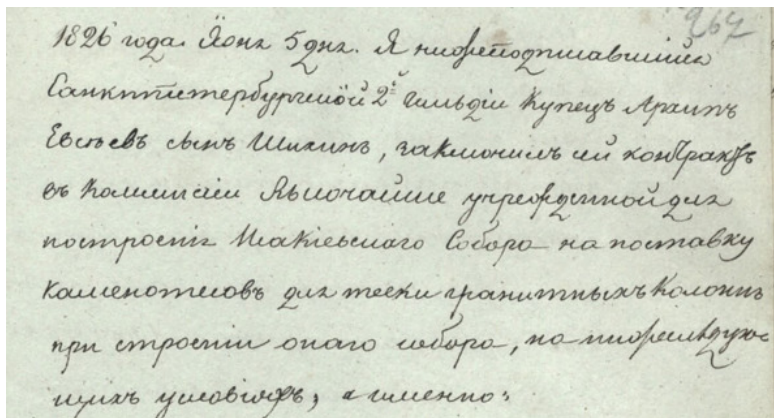 267
1826 года. Июня 5 дня. Я нижеподписавшийся
Санктпетербургской 2й гильдіи Купецъ Архипъ
Евсѣевъ сынъ Шихинъ, заключилъ сей контрактъ
въ Коммисіи Высочайше учрежденной для
построенія Исакіевскаго Собора на поставку
каменотесовъ для тески гранитныхъ Колоннъ
при строеніи онаго собора, на нижеслѣдую-
щихъ условіяхъ, а именно: